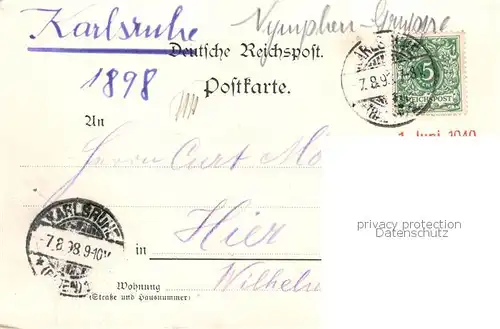 Karlsruhe Nymphen-Gruppe
Deutsche Reichspost.
1898
Postkarte.
KARLSRUHE
7.8.98
5
REICHSPOST
An
1. Juni 1940
Herrn Curt
privacy protection
Datenschutz
KARLSRUHE
7.8.98.9-10V.
* (BADEN)
Hier
in
Wilhelm
Wohnung
(Straße und Hausnummer)